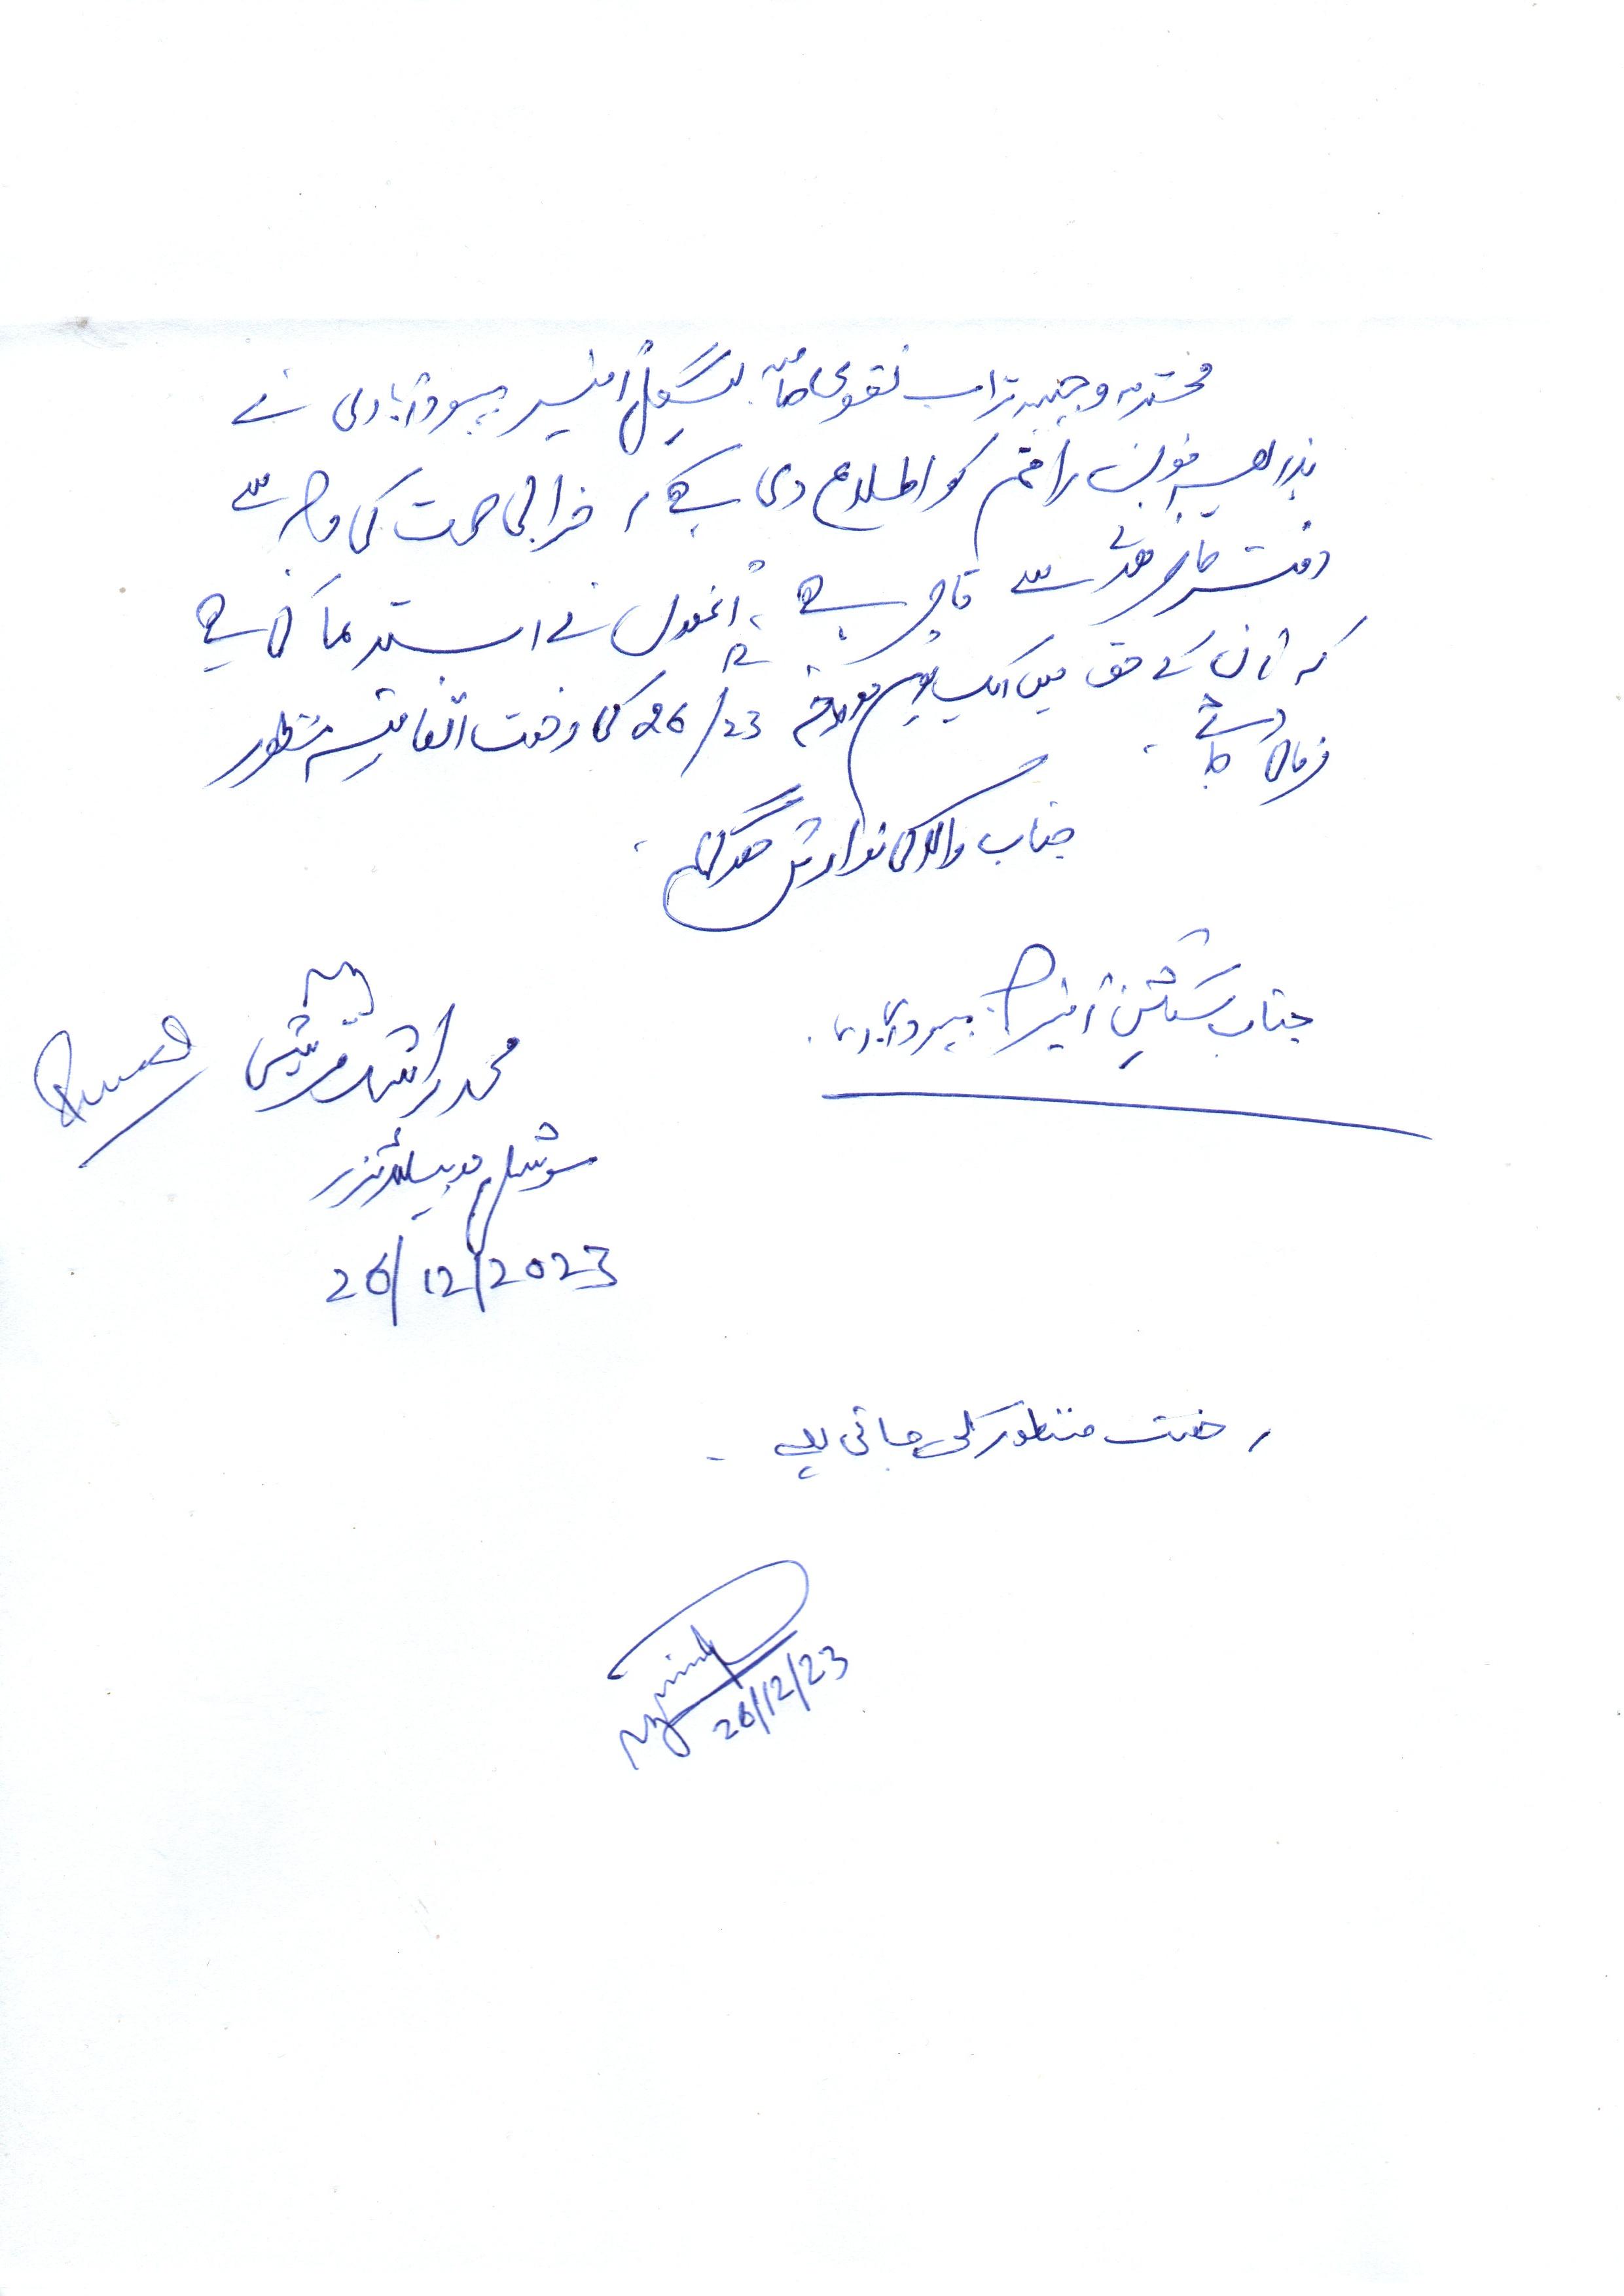 محترمہ وجیہہ تراب نقوی صاحبہ لیگل آفیسر بہبود آبادی نے
بذریعہ فون راقم کو اطلاع دی ہے، خرابی صحت کی وجہ سے
دفتر حاضر ہونے سے قاصر ہے، انھوں نے استدعا کی ہے
کہ ان کے حق میں ایک یوم مورخہ 26/12/23 کی رخصت اتفاقیہ منظور
فرمائی جائے۔
جناب والا کی نوازش ہوگی۔
جناب آفیسر بہبود آبادی۔
محمد راشد قریشی
سوشل موبیلائزر
26/12/2023
رخصت منظور کی جاتی ہے۔
26/12/23